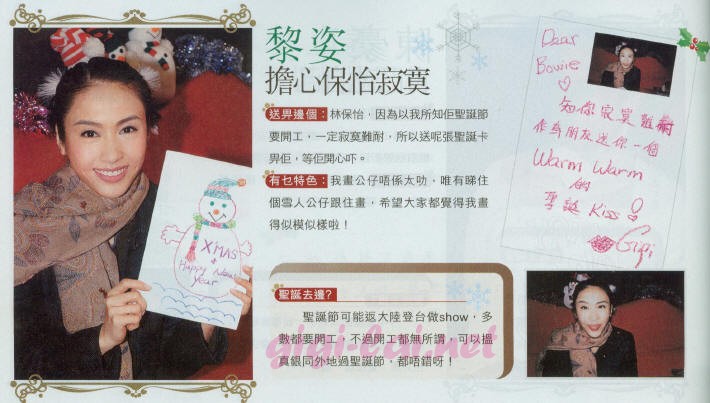 黎姿
擔心保怡寂寞
送畀邊個：林保怡，因為以我所知佢聖誕節
要開工，一定寂寞難耐，所以送呢張聖誕卡
畀佢，等佢開心吓。
有乜特色：我畫公仔唔係太叻，唯有睇住
個雪人公仔跟住畫，希望大家都覺得我畫
得似模似樣啦！
聖誕去邊?
聖誕節可能返大陸登台做show，多
數都要開工，不過開工都無所謂，可以搵
真銀同外地過聖誕節，都唔錯呀！
gigi-lai.net
XMAS
+
Happy New
year
Dear
Bowie
知你寂寞難耐
作為朋友送你一個
Warm Warm
的
聖誕 Kiss
Gigi